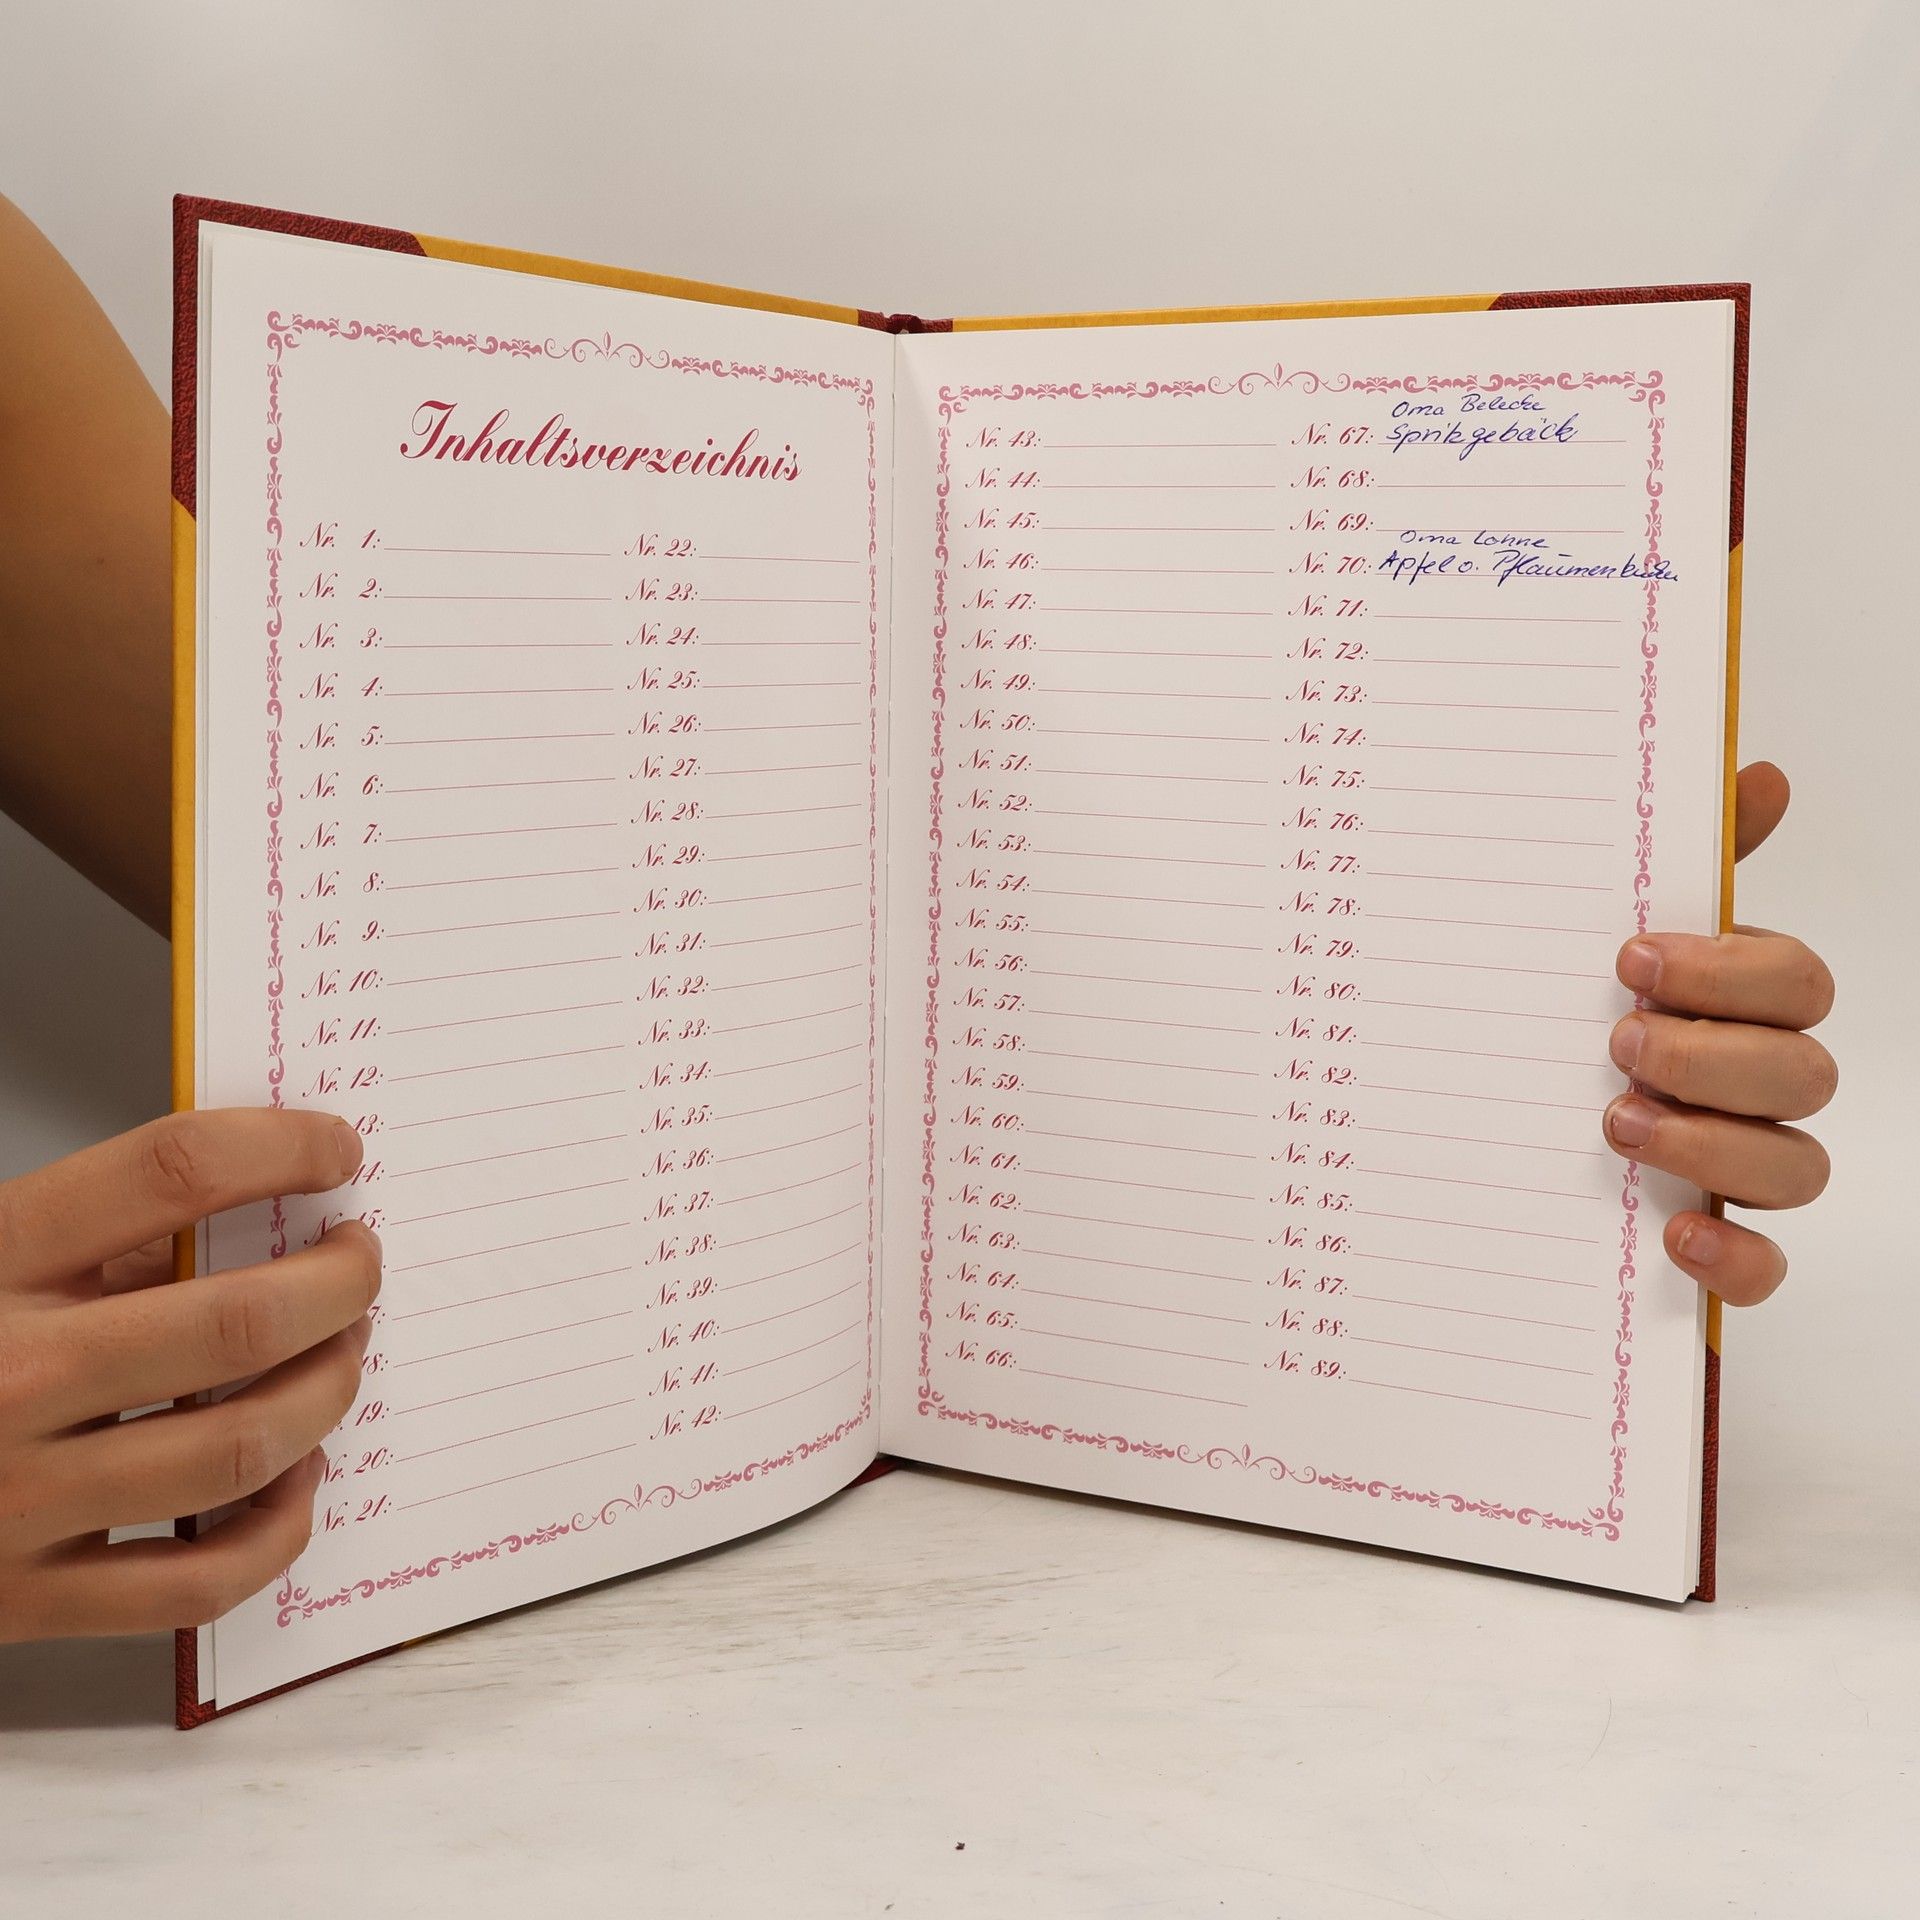 Inhaltsverzeichnis
Nr. 1:
Nr. 2:
Nr. 3:
Nr. 4:
Nr. 5:
Nr. 6:
Nr. 7:
Nr. 8:
Nr. 9:
Nr. 10:
Nr. 11:
Nr. 12:
13:
14:
15:
7:
18:
19:
Nr. 20:
Nr. 21:
Nr. 22:
Nr. 23:
Nr. 24:
Nr. 25:
Nr. 26:
Nr. 27:
Nr. 28:
Nr. 29:
Nr. 30:
Nr. 31:
Nr. 32:
Nr. 33:
Nr. 34:
Nr. 35:
Nr. 36:
Nr. 37:
Nr. 38:
Nr. 39:
Nr. 40:
Nr. 41:
Nr. 42:
Nr. 43:
Nr. 44:
Nr. 45:
Nr. 46:
Nr. 47:
Nr. 48:
Nr. 49:
Nr. 50:
Nr. 51:
Nr. 52:
Nr. 53:
Nr. 54:
Nr. 55:
Nr. 56:
Nr. 57:
Nr. 58:
Nr. 59:
Nr. 60:
Nr. 61:
Nr. 62:
Nr. 63:
Nr. 64:
Nr. 65:
Nr. 66:
Oma Belecke
Nr. 67: Spritzgebäck
Nr. 68:
Nr. 69:
Oma Lohne
Nr. 70: Apfel o. Pflaumenkuchen
Nr. 71:
Nr. 72:
Nr. 73:
Nr. 74:
Nr. 75:
Nr. 76:
Nr. 77:
Nr. 78:
Nr. 79:
Nr. 80:
Nr. 81:
Nr. 82:
Nr. 83:
Nr. 84:
Nr. 85:
Nr. 86:
Nr. 87:
Nr. 88:
Nr. 89: